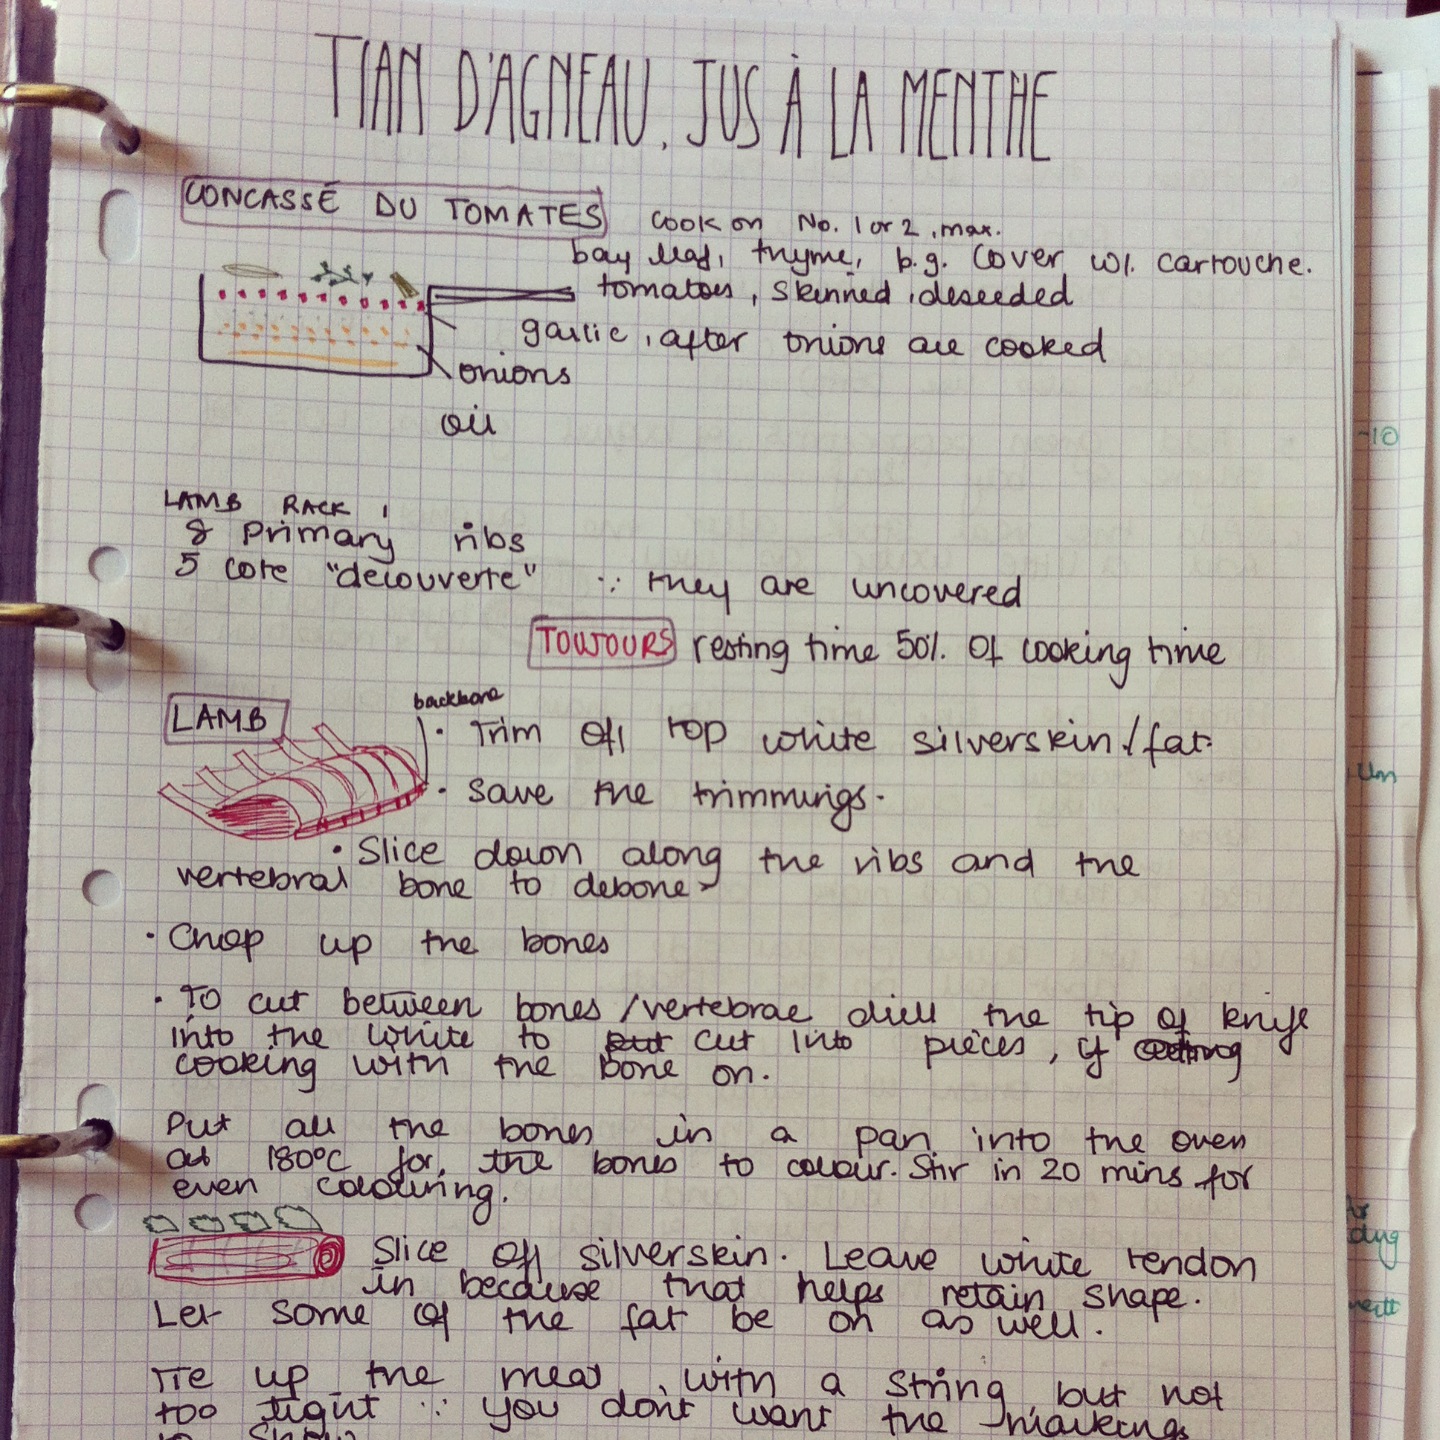 TIAN D'AGNEAU, JUS À LA MENTHE
CONCASSÉ DU TOMATES
cook on No. 1 or 2, max.
bay leaf, thyme, b.g. Cover w/. cartouche.
tomatoes, skinned, deseeded
garlic, after onions are cooked
onions
oil
LAMB RACK,
8 Primary ribs
5 cote "decouverte" ∵ they are uncovered
TOUJOURS resting time 50% of cooking time
LAMB
backbone
· Trim off top white silverskin/fat.
· Save the trimmings.
· Slice down along the ribs and the
vertebral bone to debone
· Chop up the bones
· To cut between bones/vertebrae drill the tip of knife
into the white to cut into pieces, if
cooking with the bone on.
Put all the bones in a pan into the oven
at 180°C for the bones to colour. Stir in 20 mins for
even colouring.
Slice off silverskin. Leave white tendon
in because that helps retain shape.
Let some of the fat be on as well.
Tie up the meat with a string but not
too tight ∵ you dont want the markings
to show
-10